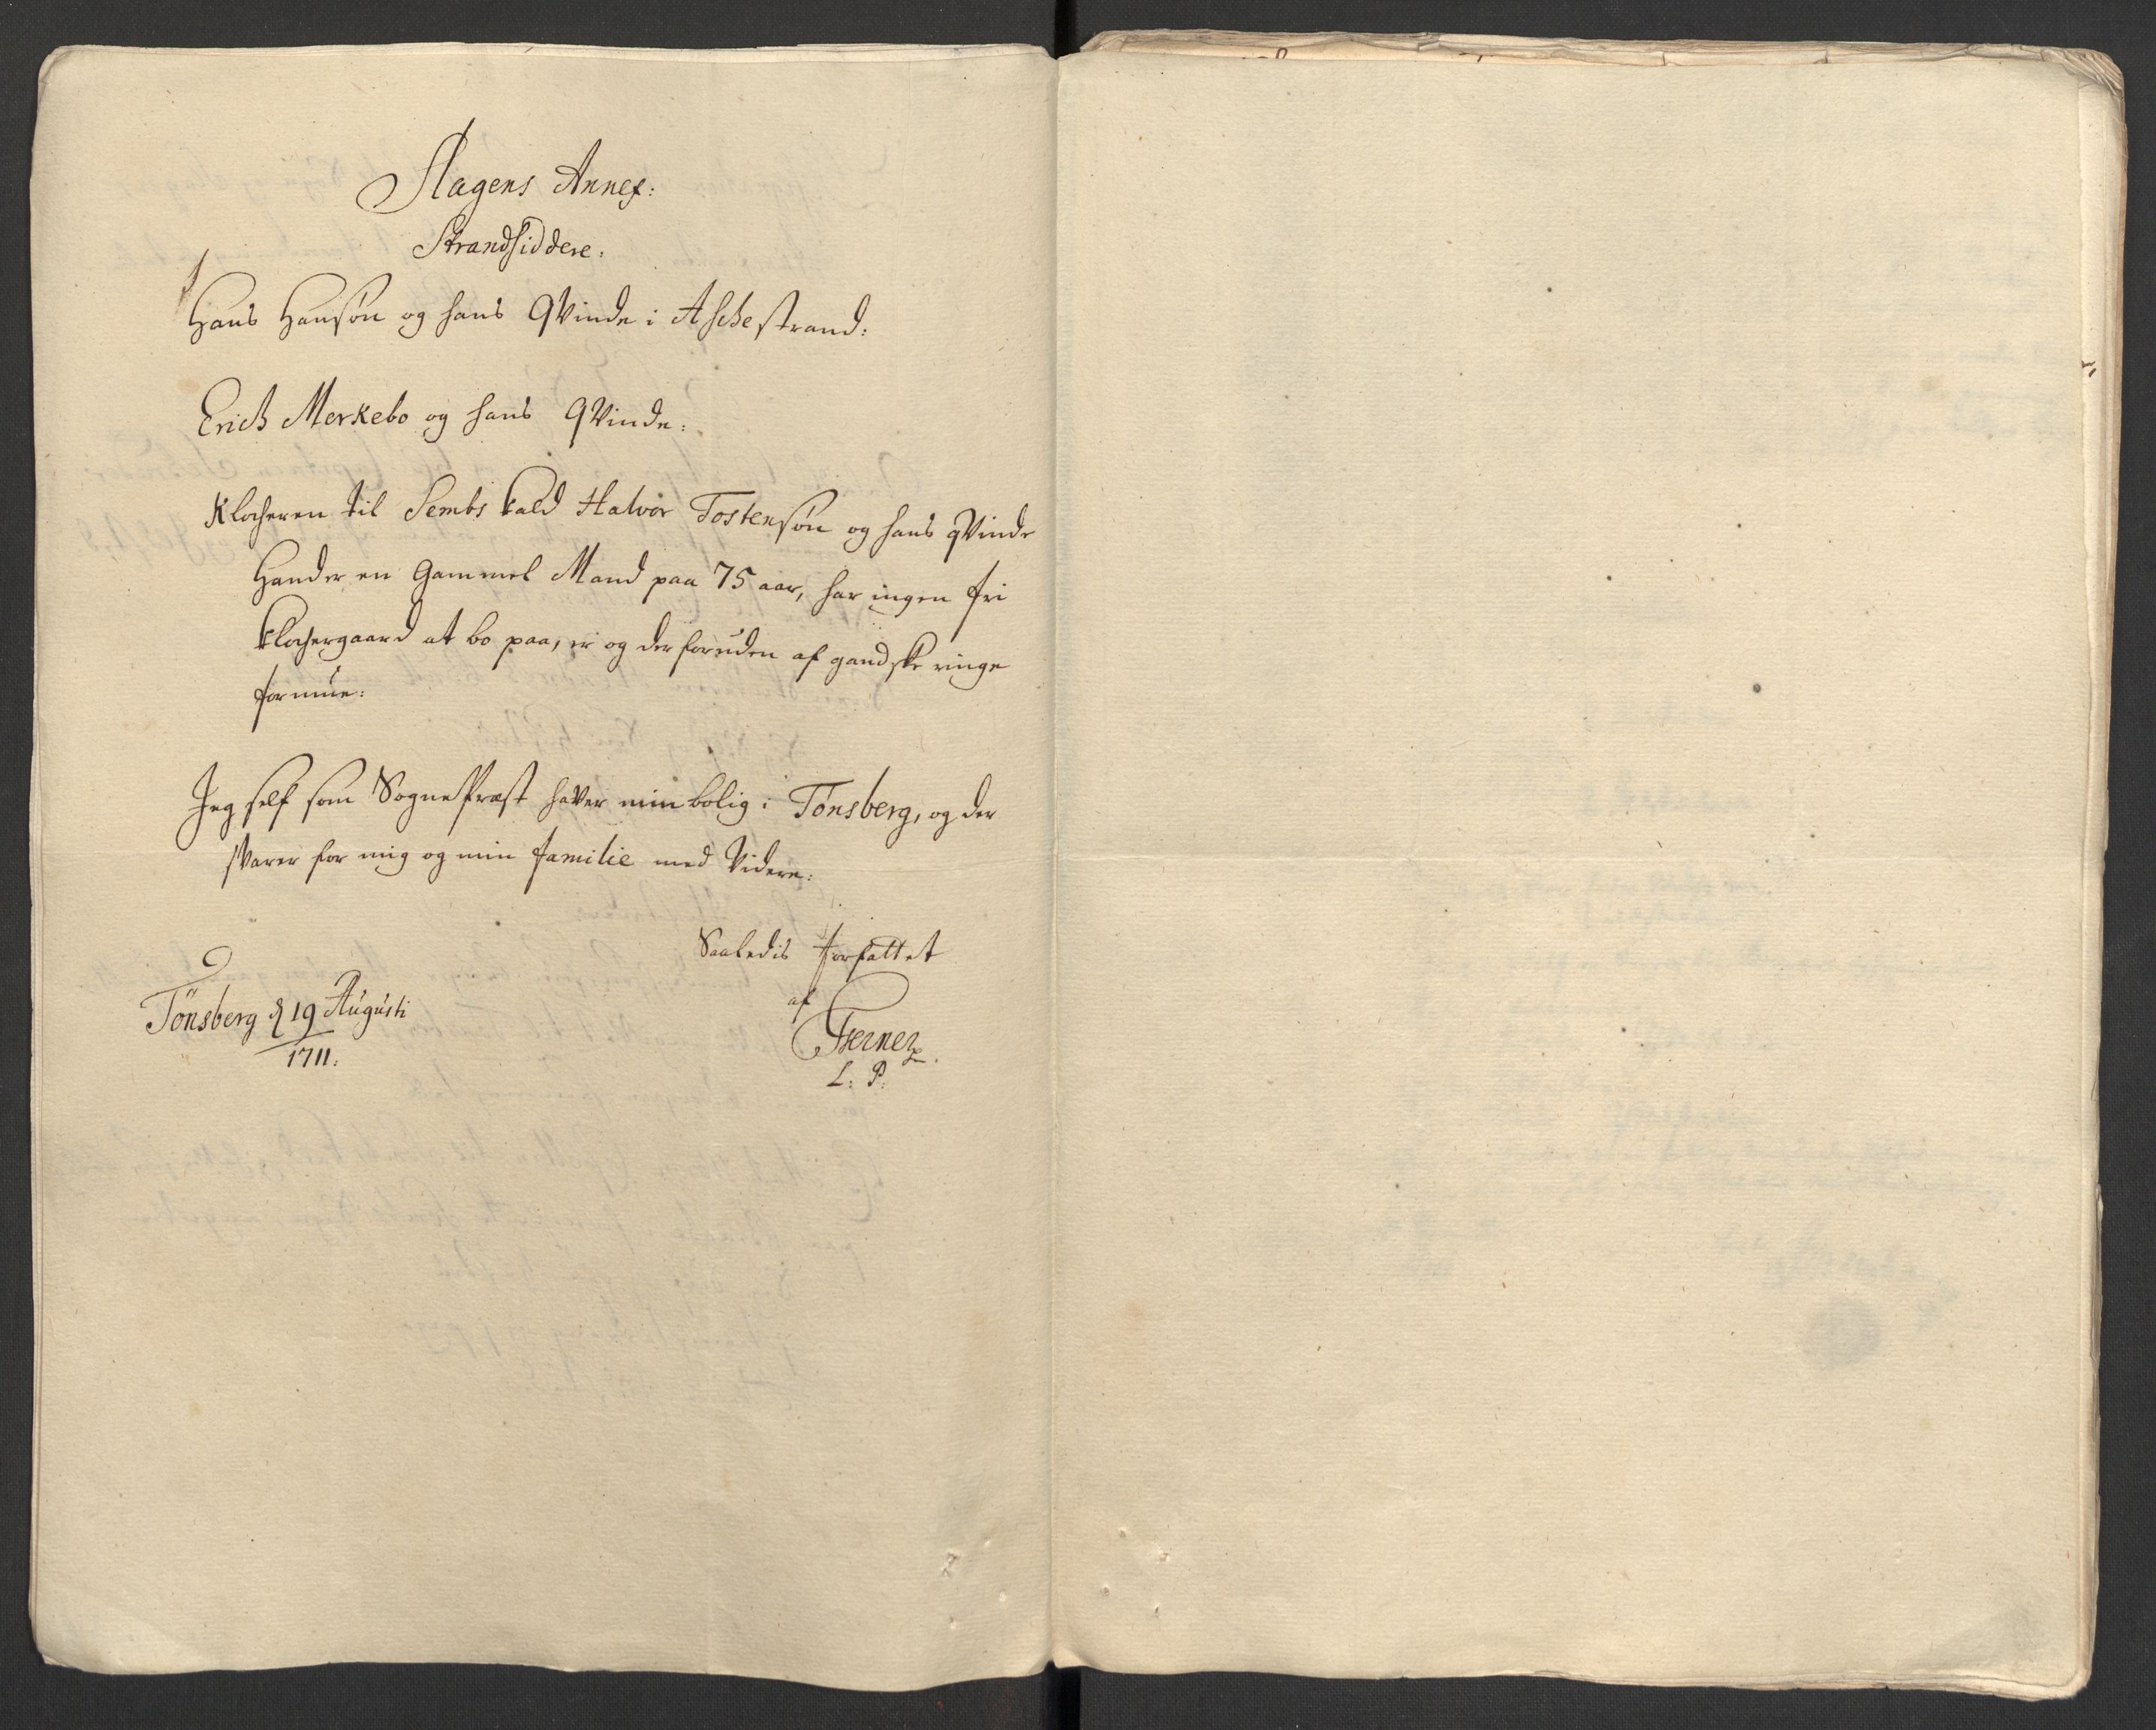 Slagens Annex:
Strandsiddere:
Hans Hansøn og hans Qvinde i Aschestrand:
Erich Merkebo og hans Qvinde:
Klocheren til Sembs kald Halvor Tostensøn og hans qvinde
Hand er en Gammel Mand paa 75 aar, har ingen fri
klochergaard at bo paa, er og der foruden af gandske ringe
formue:
Jeg self som SognePræst haver min bolig i Tønsberg, og der
svarer for mig og min familie med Videre:
Saaledis forfattet
af
Tönsberg d 19 Augusti
1711.
L: P: